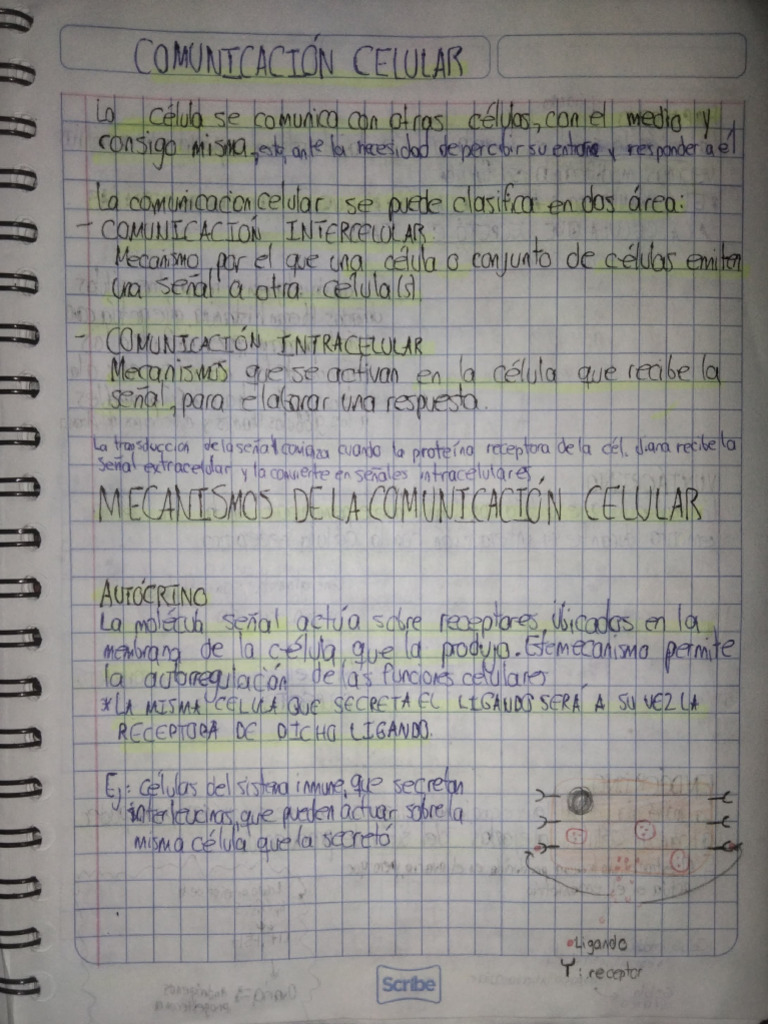 COMUNICACIÓN CELULAR
La célula se comunica con otras células, con el medio y
consigo misma, esto, ante la necesidad de percibir su entorno y responder a él
La comunicacion celular se puede clasificar en dos área:
- COMUNICACIÓN INTERCELULAR:
Mecanismo por el que una célula o conjunto de células emiten
una señal a otra celula(s)
- COMUNICACIÓN INTRACELULAR
Mecanismos que se activan en la célula que recibe la
señal, para elaborar una respuesta.
La transduccion de la señal comienza cuando la proteína receptora de la cél. diana recibe la
señal extracelular y la convierte en señales intracelulares
MECANISMOS DE LA COMUNICACIÓN CELULAR
AUTÓCRINO
La molécula señal actúa sobre receptores ubicados en la
membrana de la célula que la produjo. Este mecanismo permite
la autorregulación de las funciones celulares
*LA MISMA CELULA QUE SECRETA EL LIGANDO SERÁ A SU VEZ LA
RECEPTORA DE DICHO LIGANDO.
Ej: células del sistema inmune, que secretan
interleucinas, que pueden actuar sobre la
misma célula que la secretó
•Ligando
Y: receptor
Scribe